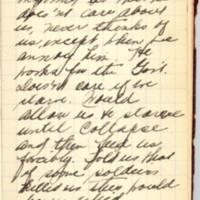 does not care about
us, never thinks of
us, except when we
annoy him. He
works for the Gov't.
doesn't care if we
starve. Would
allow us to starve
until collapse
and then feed us
forcibly. Told us that
if some soldiers
killed us they would